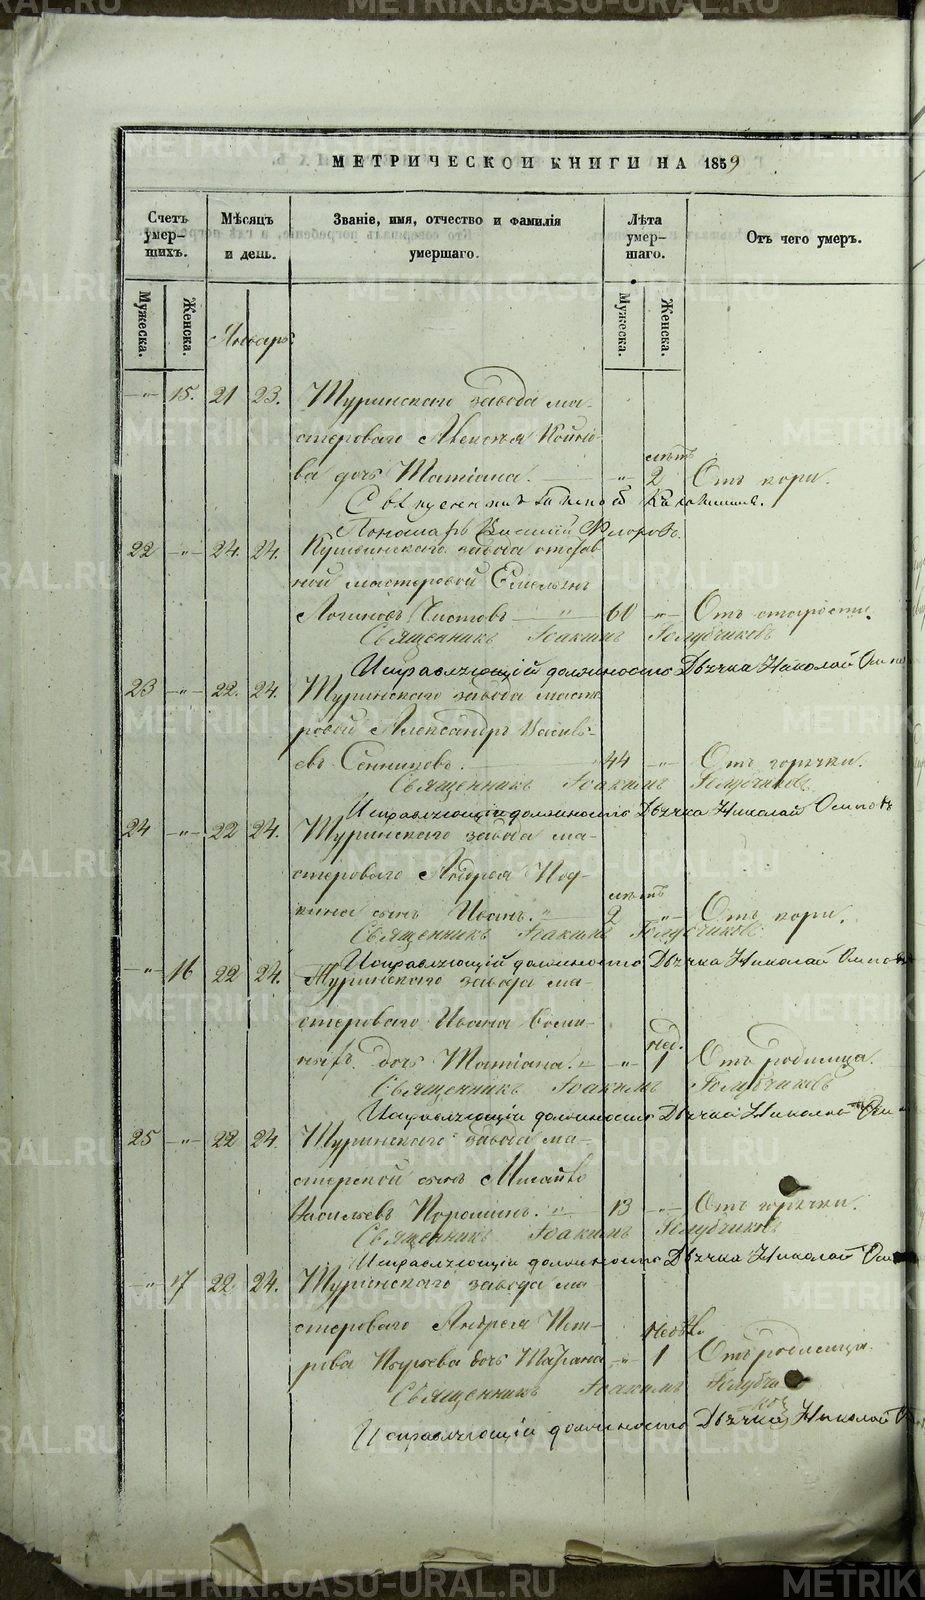 МЕТРИЧЕСКОЙ КНИГИ НА 1859
Счетъ умер-
шихъ.
Мѣсяцъ
и день.
Званіе, имя, отчество и фамилія
умершаго.
Лѣта
умер-
шаго.
Отъ чего умеръ.
Мужеска.
Женска.
Мужеска.
Женска.
Январь
-"- 15. 21 23. Туринскаго завода ма-
стероваго Алексѣя
ва дочь Татіана. -"- 2 Отъ кори.
Пономарь Василій Флоровъ.
22 -"- 24. 24. Кушвинскаго завода отстав
ной мастеровой Емельянъ
Логиновъ Чистовъ " 60 -"- Отъ старости.
Священникъ Іоакимъ Голубчиковъ
Исправляющій должность Дьячка Николай
23 -"- 22. 24. Туринскаго завода масте
ровой Александръ Василь-
евъ Санниковъ. " 44 -"- Отъ горячки.
Священникъ Іоакимъ Голубчиковъ
Исправляющій должность Дьячка Николай Осиповъ
24 -"- 22 24. Туринскаго завода ма-
стероваго Андрея
кина сынъ Иванъ. " 2 -"- Отъ кори.
Священникъ Іоакимъ Голубчиковъ
Исправляющій должность Дьячка Николай Осиповъ
-"- 16 22 24. Туринскаго завода ма-
стероваго Ивана
дочь Татіана. " -"- нед. 1 Отъ родимца.
Священникъ Іоакимъ Голубчиковъ
Исправляющій должность Дьячка Николай Оси-
25 -"- 22 24. Туринскаго завода ма-
стерской сынъ
Васильевъ Порошинъ. " 13 -"- Отъ горячки.
Священникъ Іоакимъ Голубчиковъ
Исправляющій должность Дьячка Николай
-"- 17 22 24. Туринскаго завода ма
стероваго Андрея Пет-
рова дочь Татіана -"- 1 Отъ родимца.
Священникъ Іоакимъ Голубчи
ковъ
Исправляющій должность Дьячка Николай
METRIKI.GASO-URAL.RU